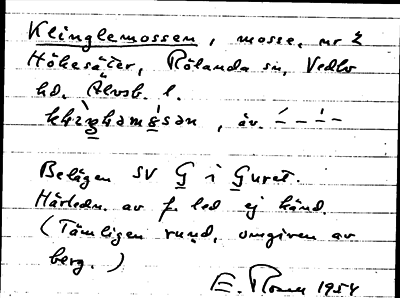 Klinglemossen, mosse, nr 2
Hökesäter, Rölanda sn, Vedbo
hd. Älvsb. l.
, äv.
Belägen SV G i Guret.
Härledn. av f. led ej känd.
(Tämligen rund, omgiven av
berg.)
E. 1954